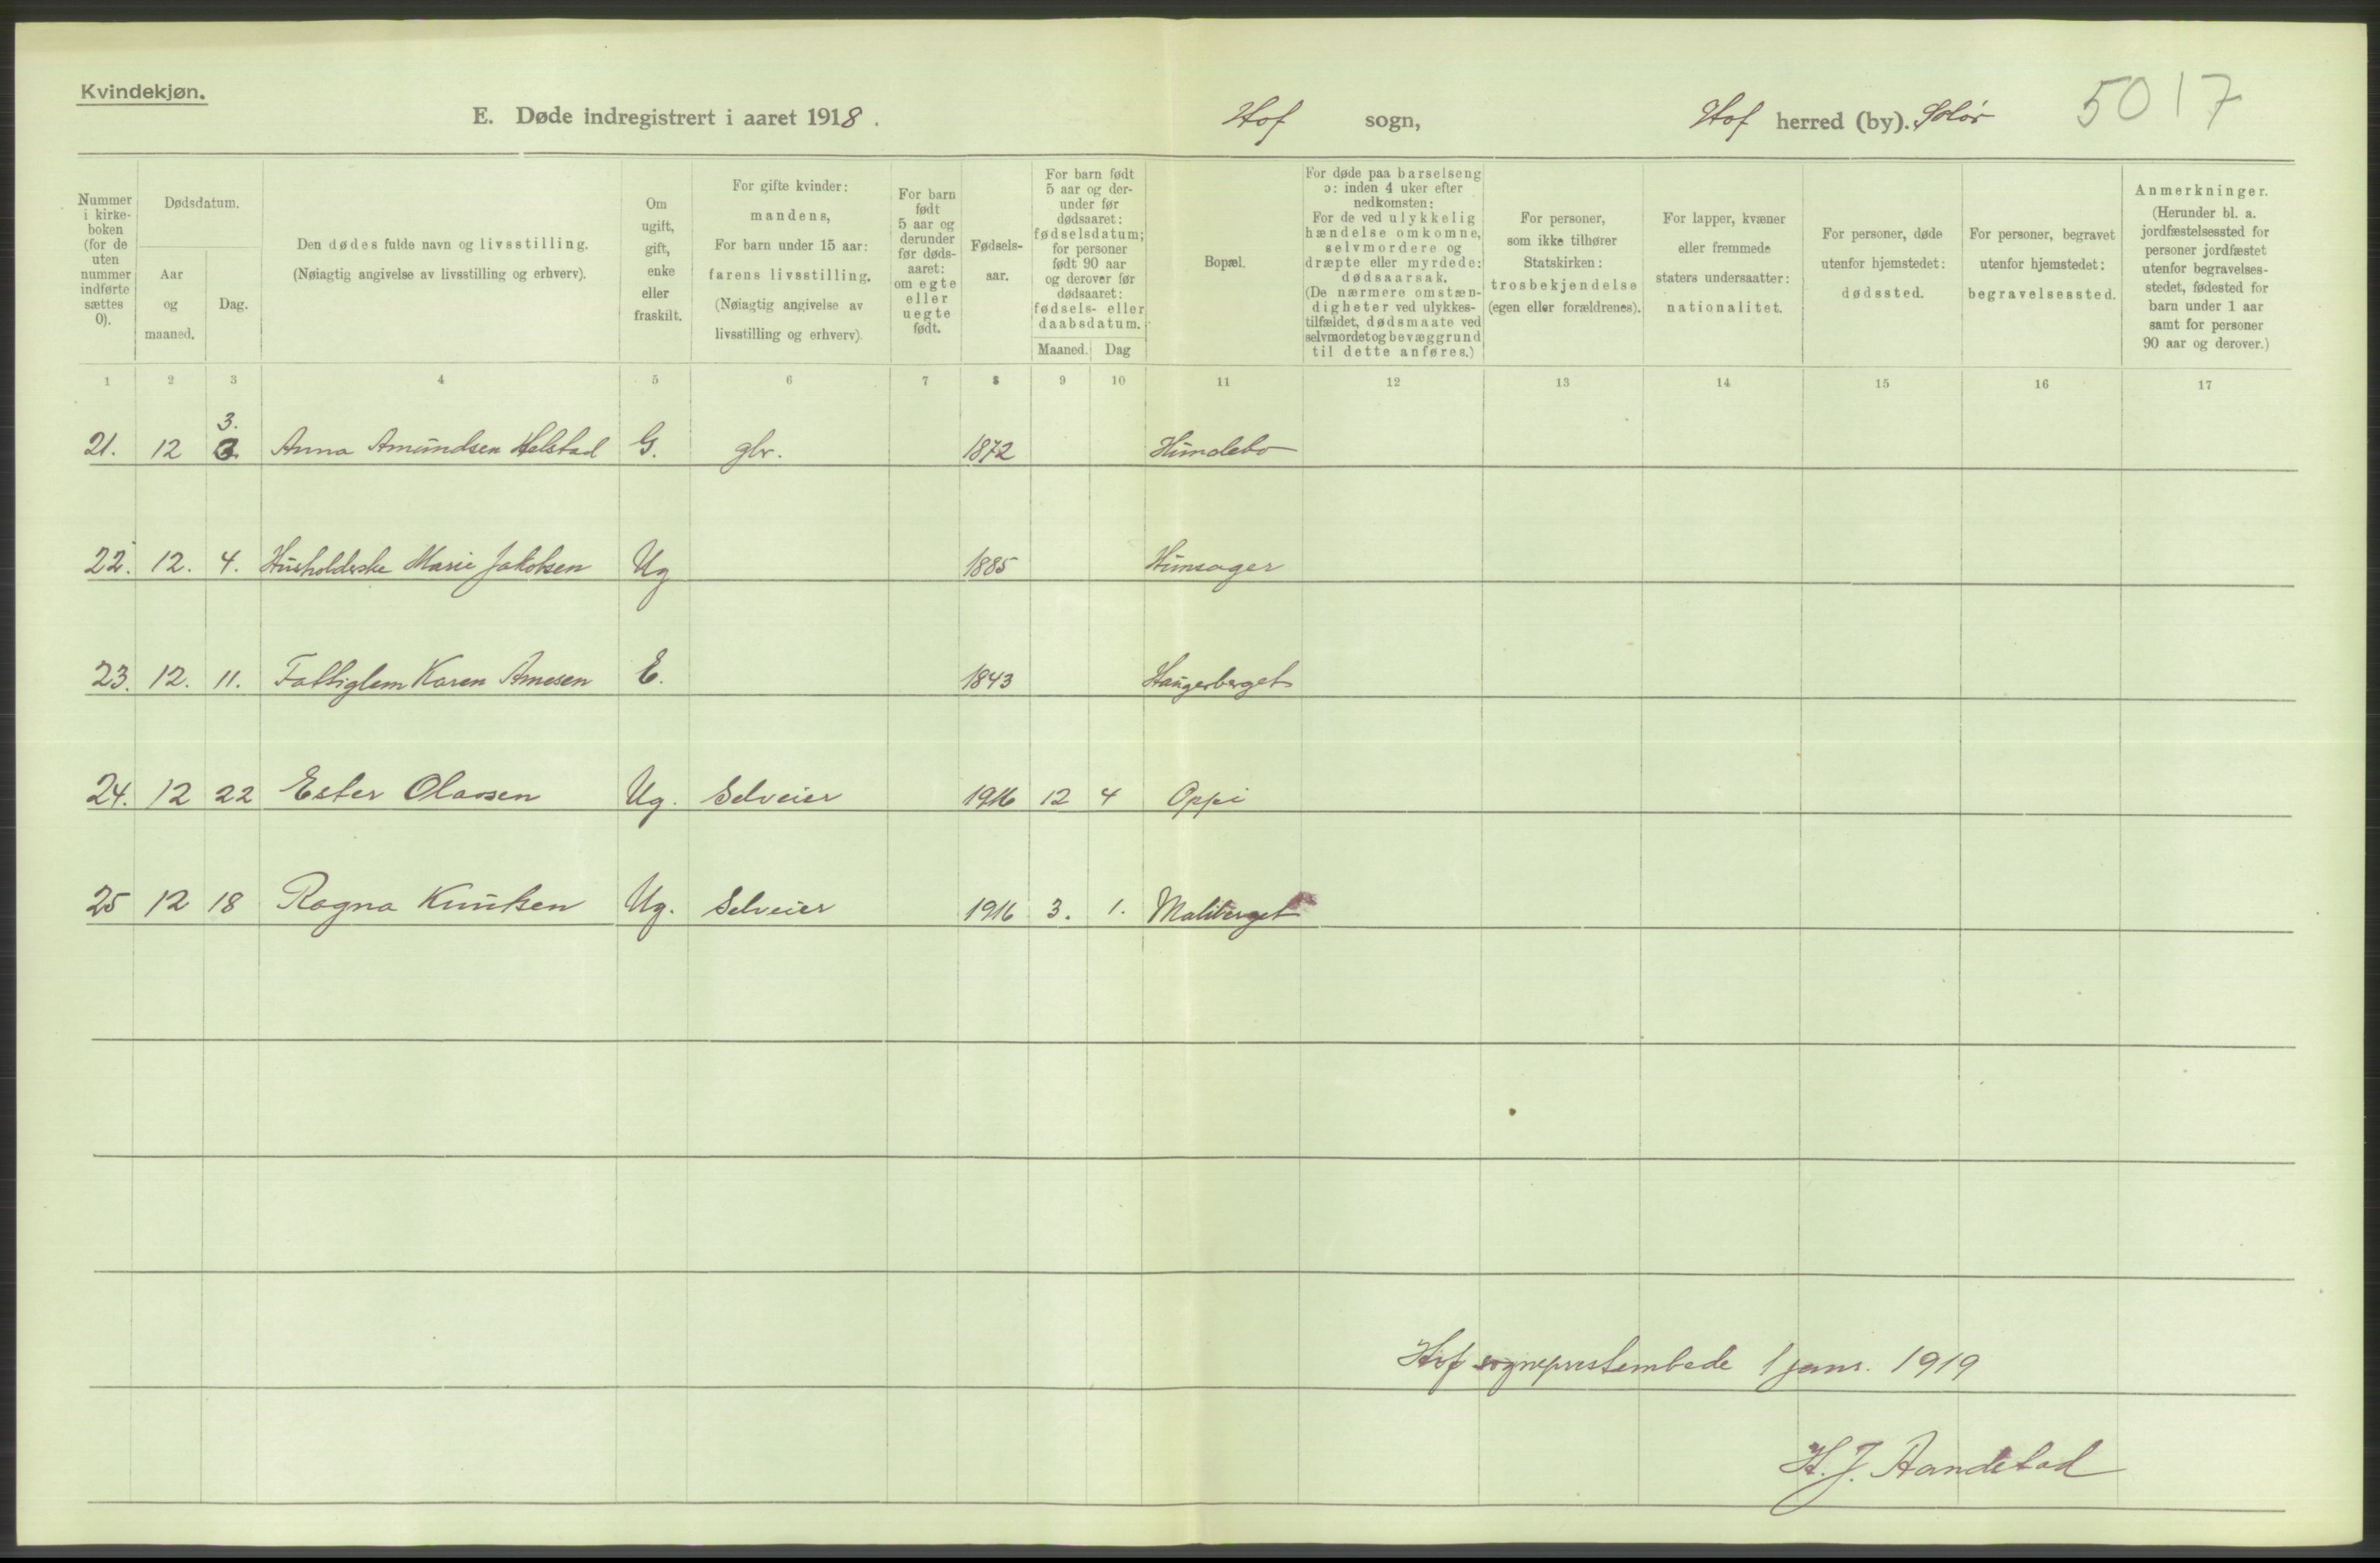 Kvindekjøn.
E. Døde indregistrert i aaret 1918. Hof sogn, Hof herred (by). Solør 5017
Nummer i kirkeboken (for de uten nummer indførte sættes 0).
Dødsdatum.
Aar og maaned.
Dag.
Den dødes fulde navn og livsstilling. (Nøiagtig angivelse av livsstilling og erhverv).
Om ugift, gift, enke eller fraskilt.
For gifte kvinder: mandens, For barn under 15 aar: farens livsstilling. (Nøiagtig angivelse av livsstilling og erhverv).
For barn født 5 aar og derunder før dødsaaret: om egte eller uegte født.
Fødselsaar.
For barn født 5 aar og derunder før dødsaaret: fødselsdatum; for personer født 90 aar og derover før dødsaaret: fødsels- eller daabsdatum.
Maaned. Dag
Bopæl.
For døde paa barselseng ɔ: inden 4 uker efter nedkomsten: For de ved ulykkelig hændelse omkomne, selvmordere og dræpte eller myrdede: dødsaarsak. (De nærmere omstændigheter ved ulykkestilfældet, dødsmaate ved selvmordet og bevæggrund til dette anføres.)
For personer, som ikke tilhører Statskirken: trosbekjendelse (egen eller forældrenes).
For lapper, kvæner eller fremmede staters undersaatter: nationalitet.
For personer, døde utenfor hjemstedet: dødssted.
For personer, begravet utenfor hjemstedet: begravelsessted.
Anmerkninger. (Herunder bl. a. jordfæstelsessted for personer jordfæstet utenfor begravelsesstedet, fødested for barn under 1 aar samt for personer 90 aar og derover.)
1 2 3 4 5 6 7 8 9 10 11 12 13 14 15 16 17
3.
21. 12 3. Anna Amundsen Helstad G. gbr. 1872 Hundebo
22. 12. 4. Husholderske Marie Jakobsen Ug 1885 Hunsager
23. 12. 11. Fattiglem Karen Arnesen E. 1843 Haugerberget
24. 12 22 Ester Olassen Ug. Selveier 1916 12 4 Oppi
25 12 18 Ragna Knutsen Ug. Selveier 1916 3. 1. Maliberget
Hof sogneprestembede 1 janr. 1919
H. J. Aandstad